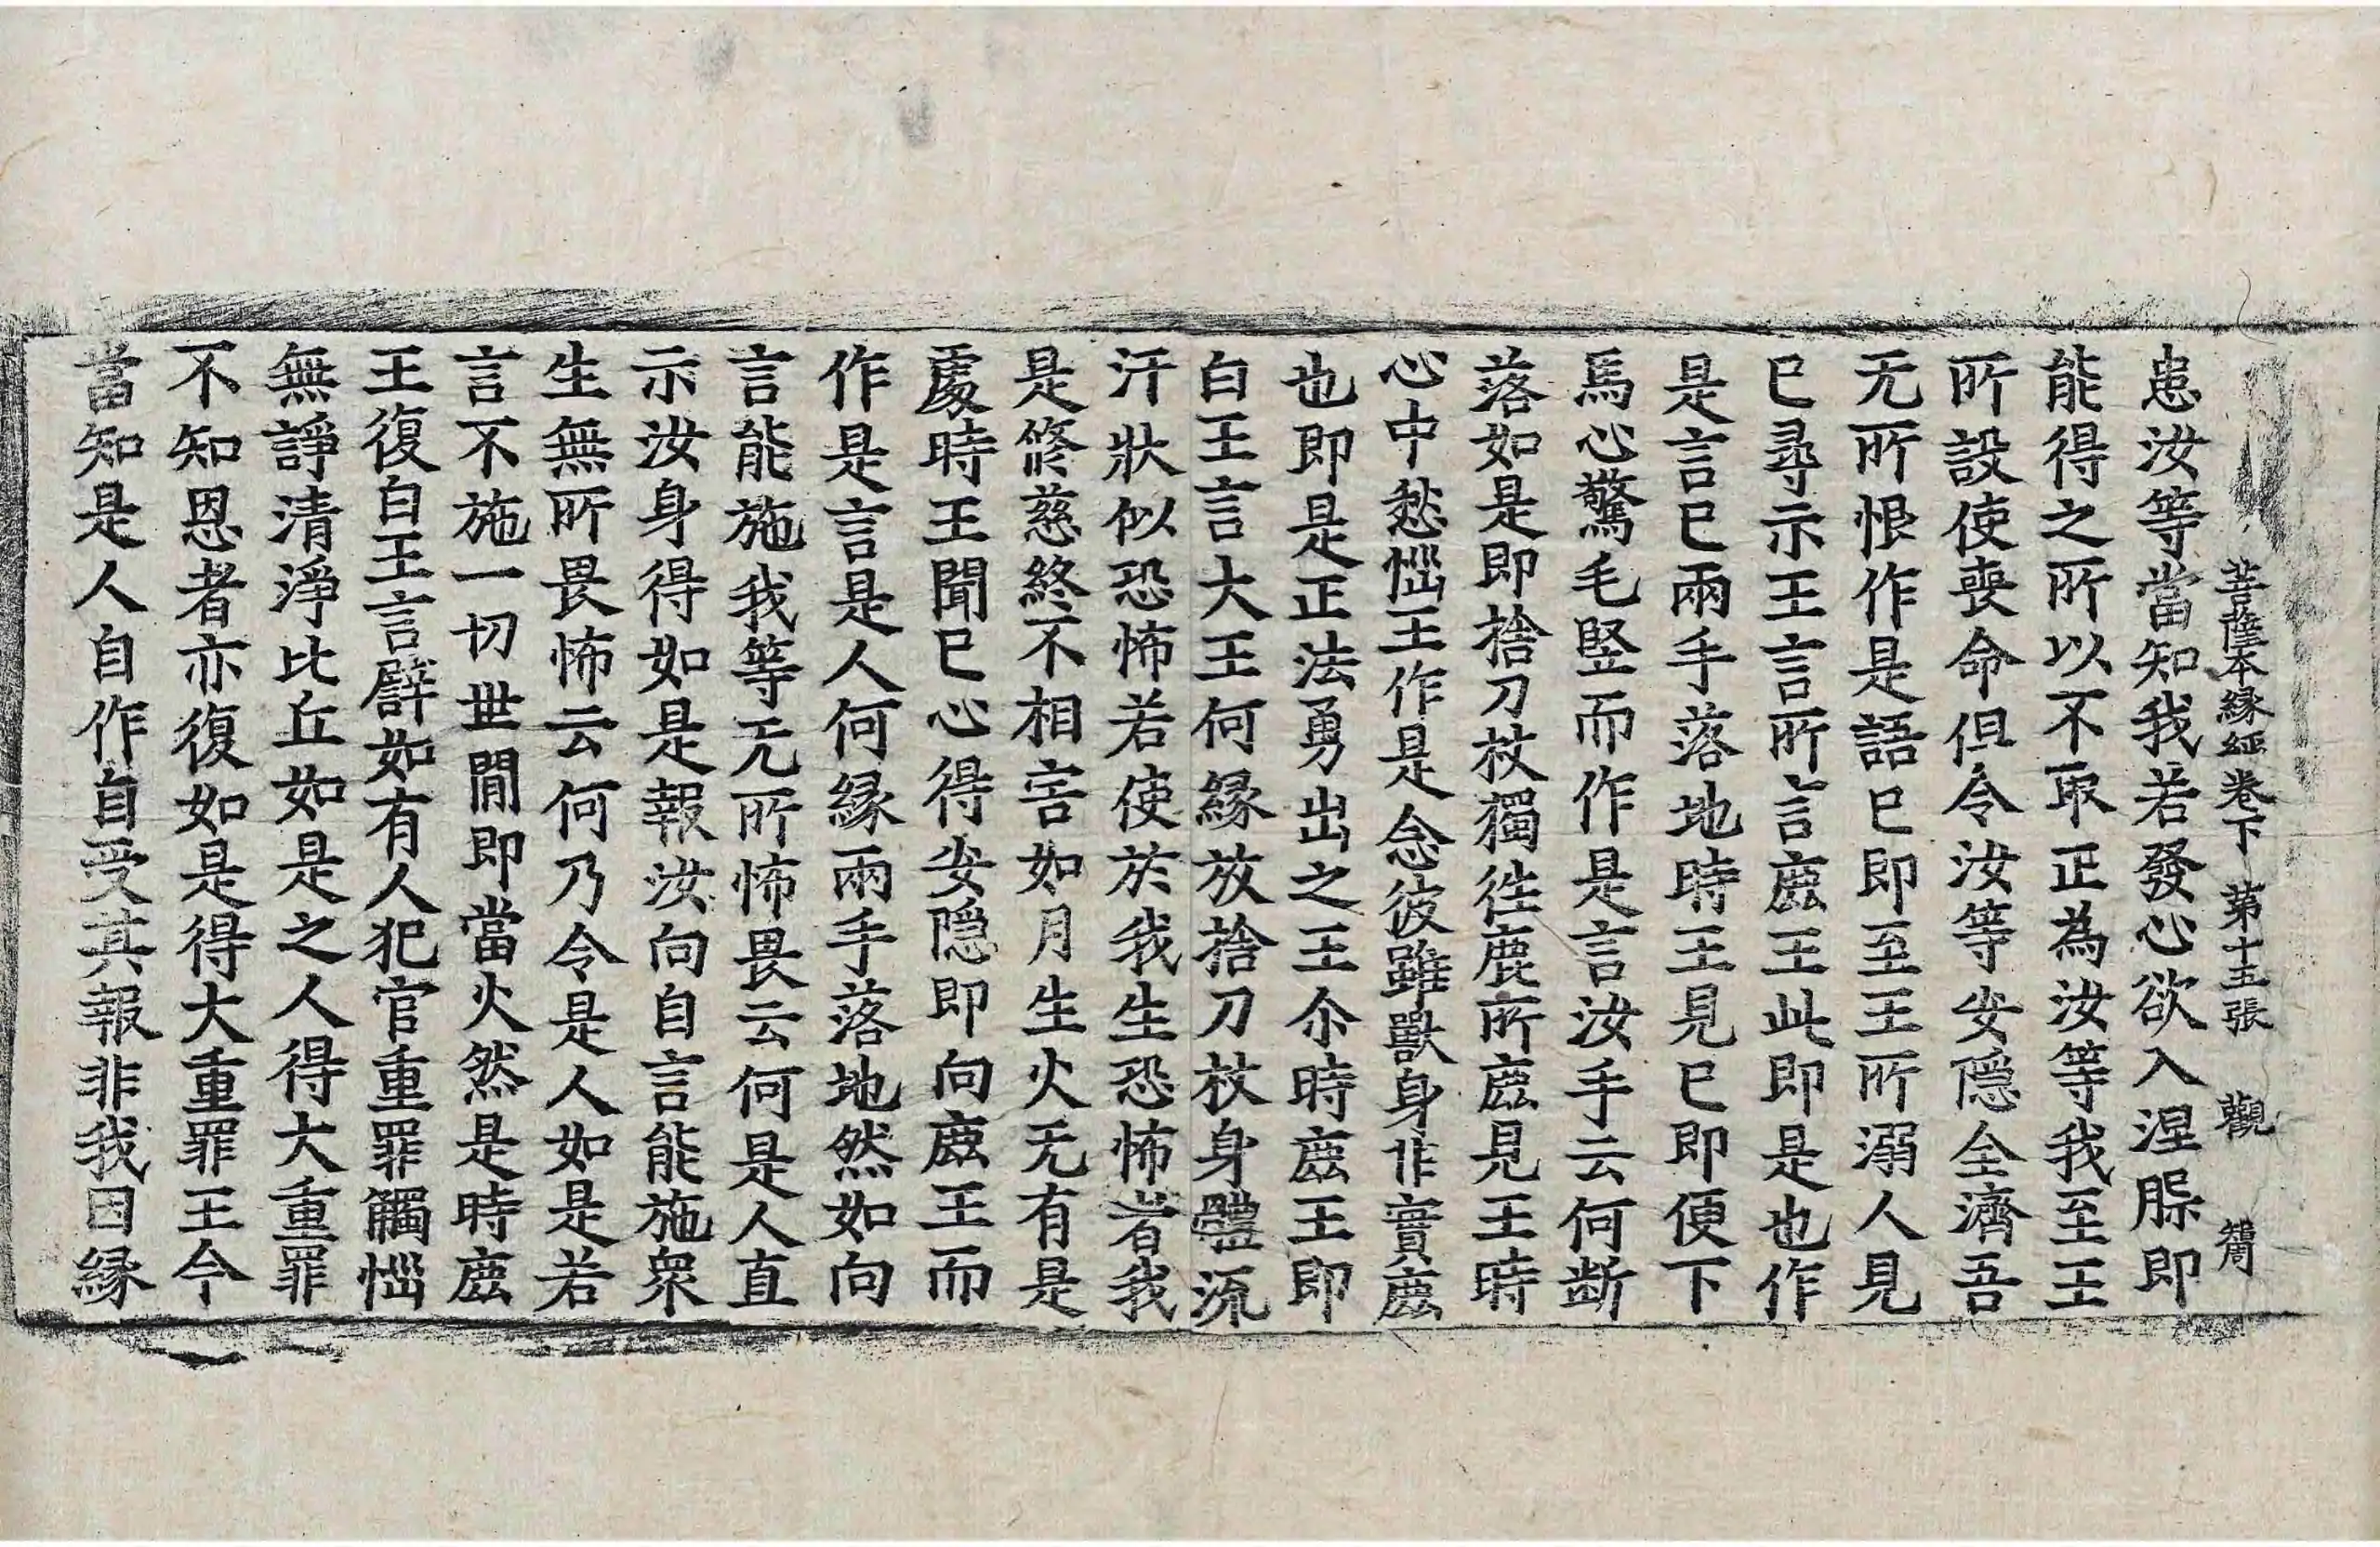 菩薩本縁經卷下　第十五張　觀
患汝等當知我若發心欲入涅槃即
能得之所以不取正為汝等我至王
所設使喪命但令汝等安隱全濟吾
无所恨作是語已即至王所溺人見
已尋示王言所言鹿王此即是也作
是言已兩手落地時王見已即便下
馬心驚毛竪而作是言汝手云何断
落如是即捨刀杖獨往鹿所鹿見王時
心中愁惱王作是念彼雖獸身非實鹿
也即是正法勇出之王尒時鹿王即
白王言大王何縁放捨刀杖身體流
汗狀似恐怖若使於我生恐怖者我
是修慈終不相害如月生火无有是
處時王聞已心得安隱即向鹿王而
作是言是人何縁兩手落地然如向
言能施我等无所怖畏云何是人直
示汝身得如是報汝向自言能施衆
生無所畏怖云何乃令是人如是若
言不施一切世閒即當火然是時鹿
王復白王言譬如有人犯官重罪觸惱
無諍清淨比丘如是之人得大重罪
不知恩者亦復如是得大重罪王今
當知是人自作自受其報非我因縁